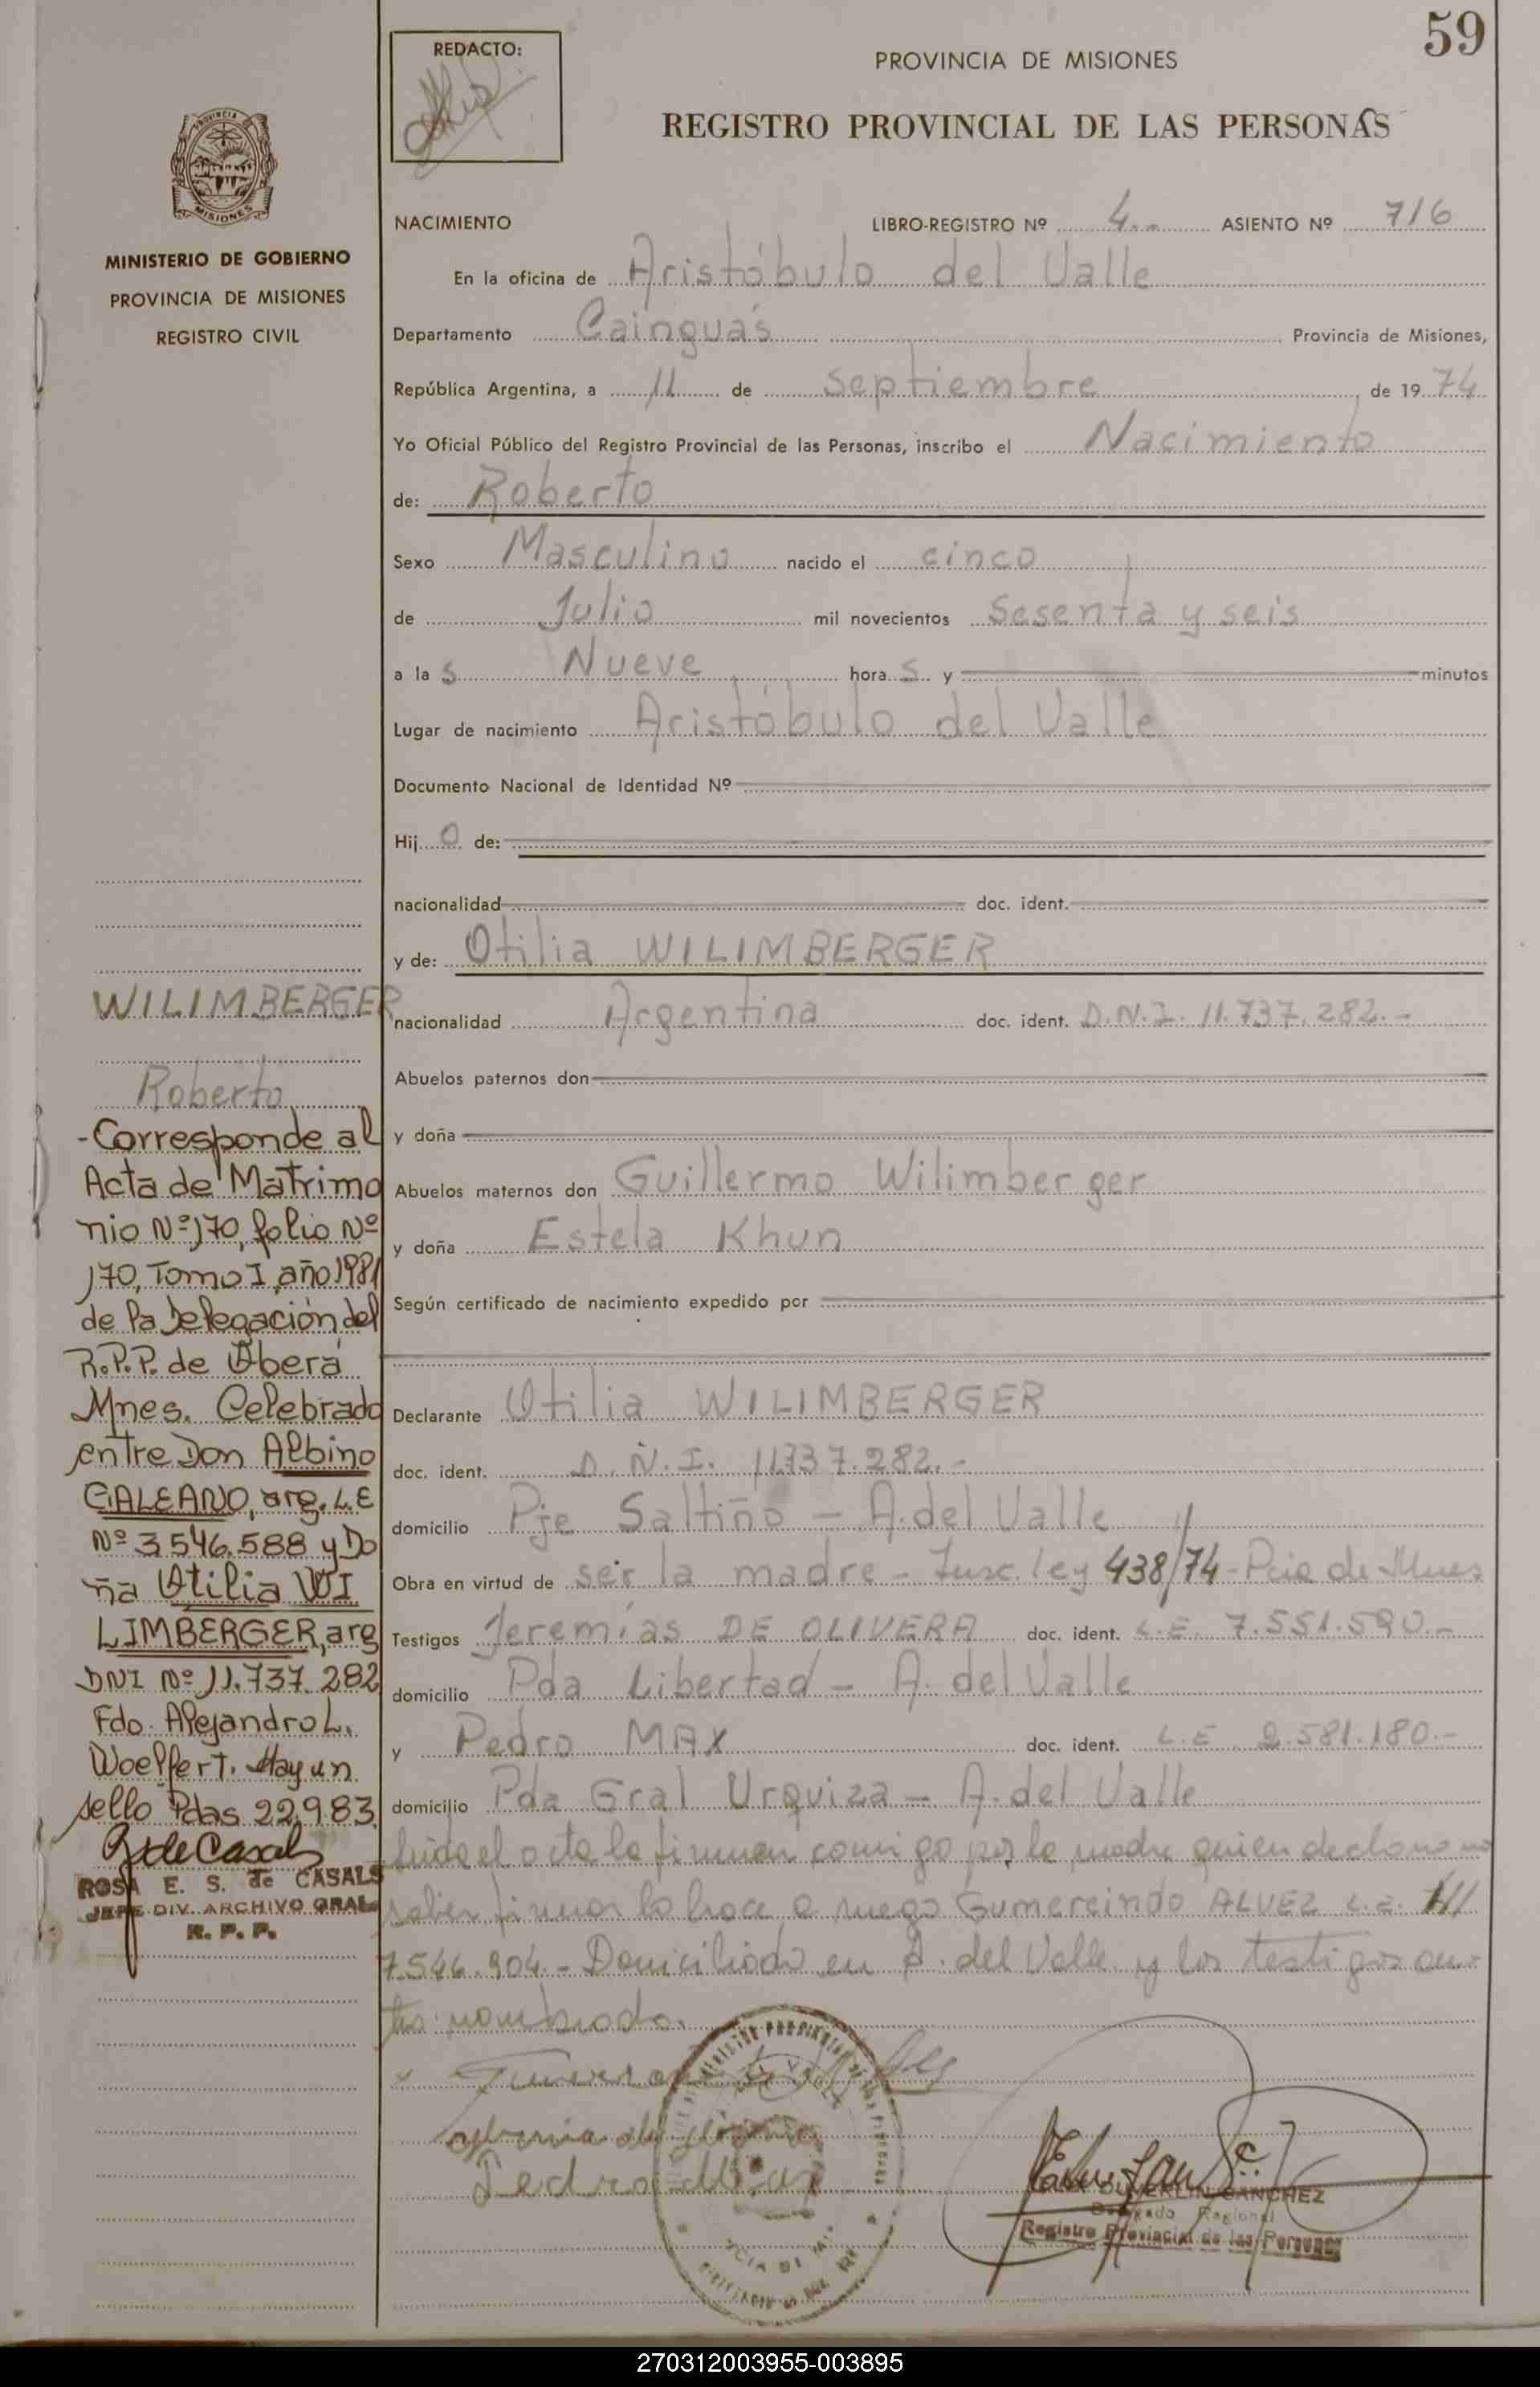 59
REDACTO:
PROVINCIA DE MISIONES
REGISTRO PROVINCIAL DE LAS PERSONAS
MISIONES
MINISTERIO DE GOBIERNO
PROVINCIA DE MISIONES
REGISTRO CIVIL
NACIMIENTO LIBRO-REGISTRO Nº 4.- ASIENTO Nº 716
En la oficina de Aristóbulo del Valle
Departamento Cainguás Provincia de Misiones,
República Argentina, a 11 de septiembre de 1974
Yo Oficial Público del Registro Provincial de las Personas, inscribo el Nacimiento
de: Roberto
Sexo Masculino nacido el cinco
de Julio mil novecientos sesenta y seis
a las Nueve horas y minutos
Lugar de nacimiento Aristóbulo del Valle
Documento Nacional de Identidad Nº
Hijo de:
nacionalidad doc. ident.
y de: Otilia WILIMBERGER
nacionalidad Argentina doc. ident. D.N.I. 11.737.282.-
Abuelos paternos don
y doña
Abuelos maternos don Guillermo Wilimberger
y doña Estela Khun
Según certificado de nacimiento expedido por
Declarante Otilia WILIMBERGER
doc. ident. D.N.I. 11737.282.-
domicilio Pje Saltiño - A. del Valle
Obra en virtud de ser la madre - Insc. ley 438/74 - Pcia de Mnes
Testigos Jeremías DE OLIVERA doc. ident. L.E. 7.551.590.-
domicilio Pda Libertad - A. del Valle
y Pedro MAX doc. ident. L.E. 2.581.180.-
domicilio Pda Gral Urquiza - A. del Valle
Leida el acta la firman comigo por la madre quien declara no
saber firmar lo hace a ruego Gumercindo ALVEZ L.E.
7.546.904.- Domiciliado en A. del Valle y los testigos an-
tes nombrado.
Pedro Max
SANCHEZ
Delegado Regional
Registro Provincial de las Personas
WILIMBERGER
Roberto
-Corresponde al
Acta de Matrimo
nio Nº 170, folio Nº
170, Tomo I, año 1981
de la Delegación del
R.P.P. de Oberá
Mnes. Celebrado
entre Don Albino
GALEANO, arg. L.E
Nº 3.546.588 y Do
ña Otilia WI
LIMBERGER, arg
DNI Nº 11.737.282
Fdo. Alejandro L.
Woelfert. Hay un
sello Pdas 22.9.83
R de Casals
ROSA E. S. de CASALS
JEFE DIV. ARCHIVO GRAL.
R. P. P.
270312003955-003895